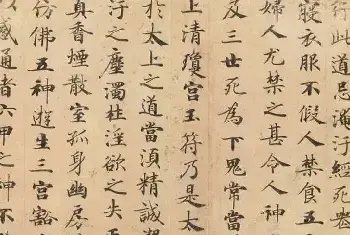 行此道忌淹汙經死喪
寢衣服不假人禁食五
婦人尤禁之甚令人神
及三世死為下鬼常當
上清瓊宮玉符乃是太
於太上之道當須精誠
汙之塵濁杜淫欲之失
真香煙散室孤身幽房
仿佛五神遊生三宮豁
感通者六甲之神不